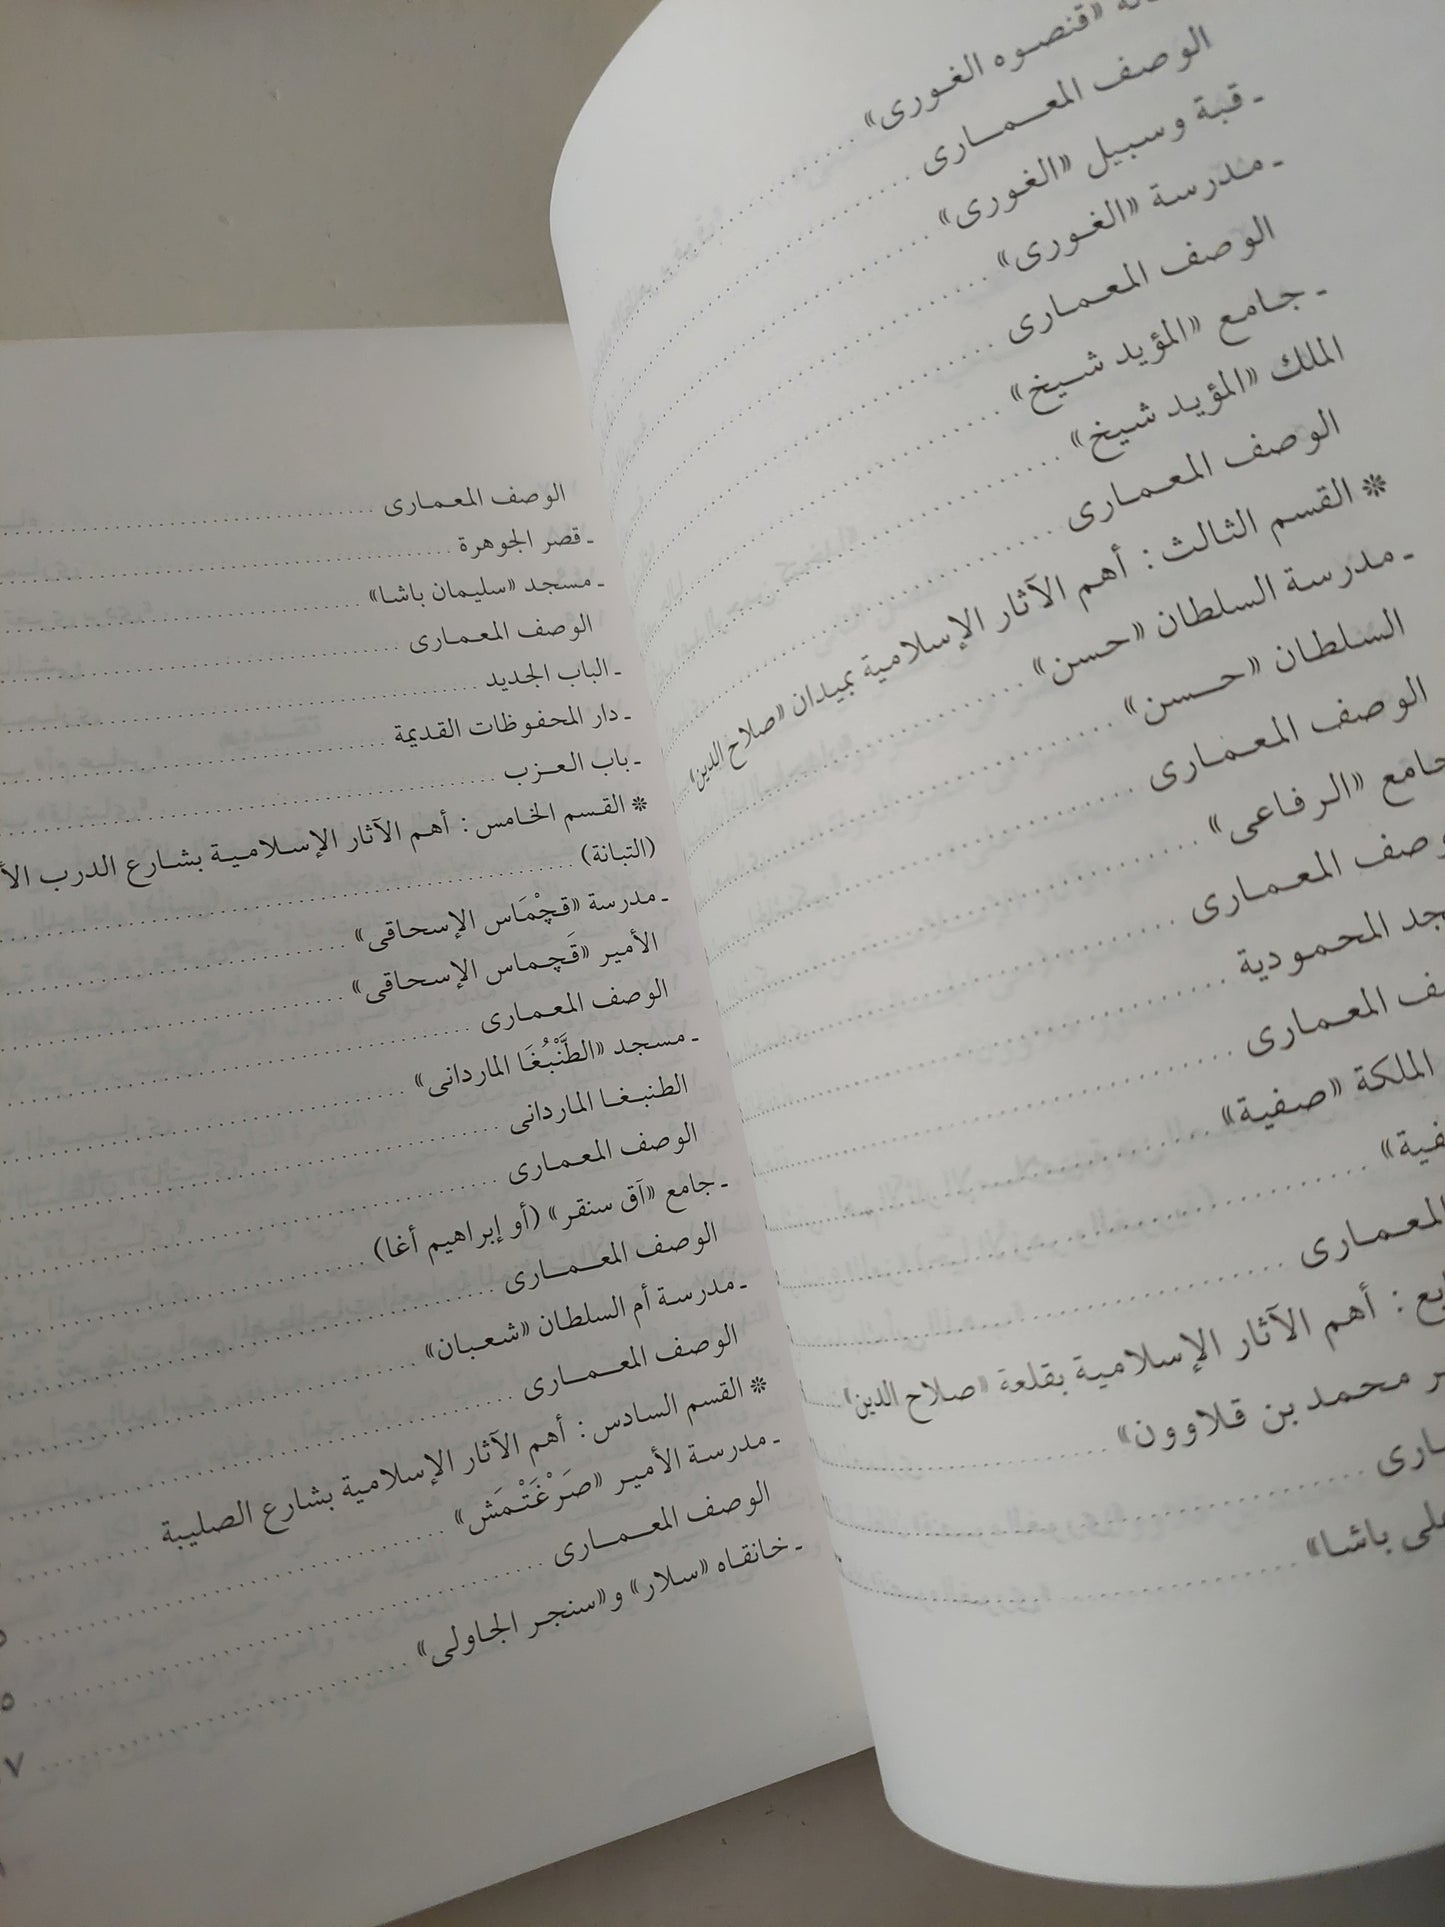 «قنصوه الغورى»
الوصف المعمارى
ـ قبة وسبيل «الغورى»
ـ مدرسة «الغورى»
الوصف المعمارى
ـ جامع «المؤيد شيخ»
الملك «المؤيد شيخ»
الوصف المعمارى
* القسم الثالث : أهم الآثار الإسلامية بميدان «صلاح الدين»
ـ مدرسة السلطان «حسن»
السلطان «حسن»
الوصف المعمارى
جامع «الرفاعى»
المعمارى
المحمودية
المعمارى
الملكة «صفية»
المعمارى
: أهم الآثار الإسلامية بقلعة «صلاح الدين»
محمد بن قلاوون»
باشا»
الوصف المعمارى
ـ قصر الجوهرة
ـ مسجد «سليمان باشا»
الوصف المعمارى
ـ الباب الجديد
ـ دار المحفوظات القديمة
ـ باب العزب
* القسم الخامس : أهم الآثار الإسلامية بشارع الدرب
(التبانة)
ـ مدرسة «قچْمَاس الإسحاقى»
الأمير «قَچماس الإسحاقى»
الوصف المعمارى
ـ مسجد «الطَّنْبُغَا الماردانى»
الطنبغا الماردانى
الوصف المعمارى
ـ جامع «آق سنقر» (أو إبراهيم أغا)
الوصف المعمارى
ـ مدرسة أم السلطان «شعبان»
الوصف المعمارى
* القسم السادس : أهم الآثار الإسلامية بشارع الصليبة
ـ مدرسة الأمير «صَرْغَتْمَش»
الوصف المعمارى
ـ خانقاه «سلار» و«سنجر الجاولى»